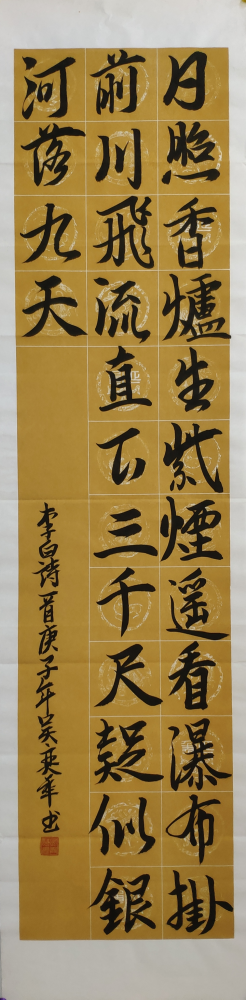 月照香爐生紫煙遥看瀑布掛
前川飛流直下三千尺疑似銀
河落九天
李白詩一首庚子年吴英书